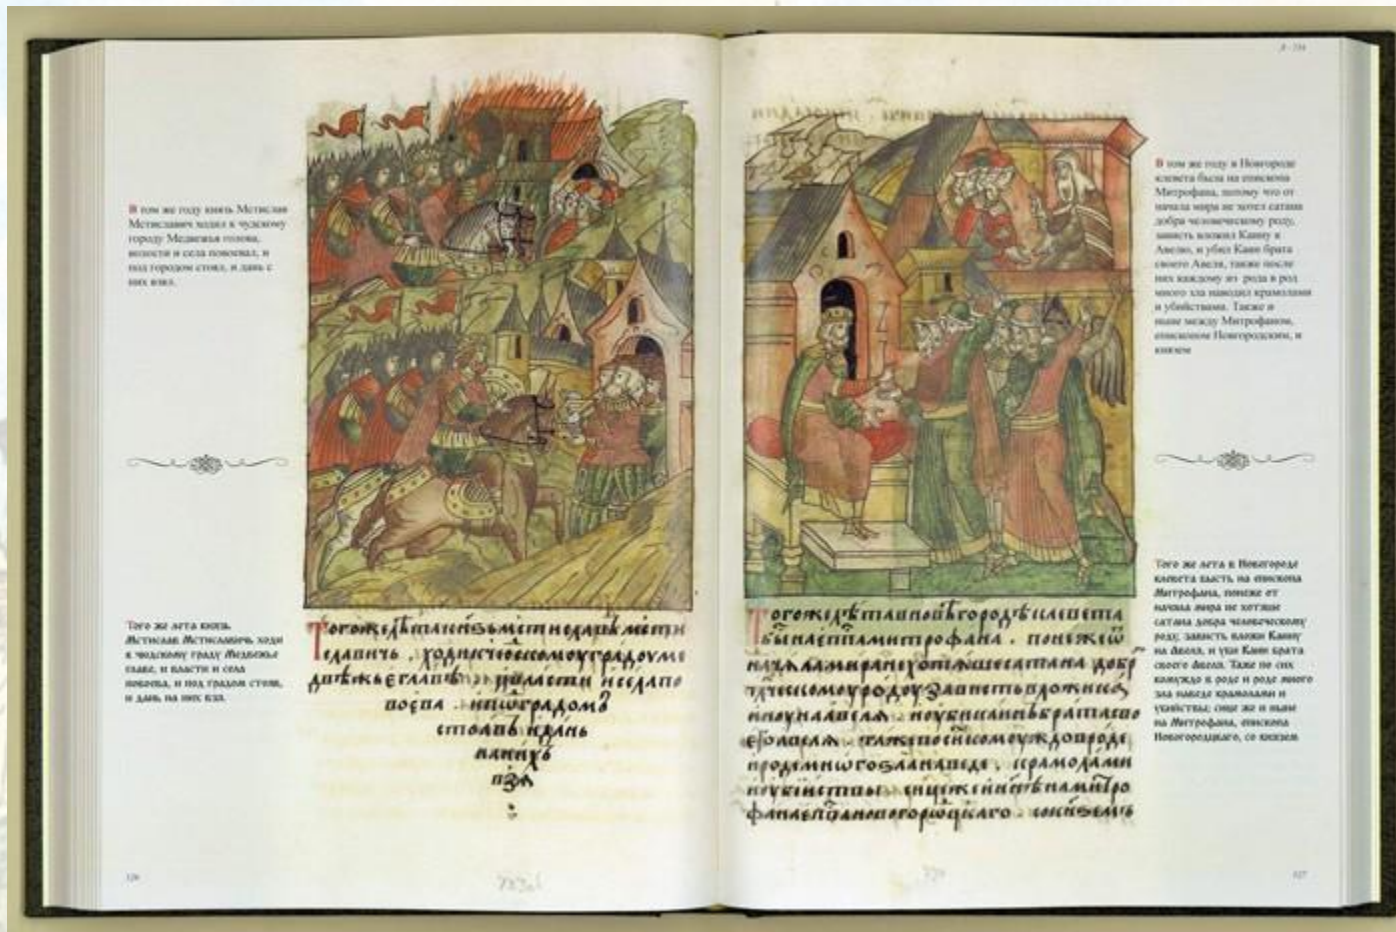 В том же году князь Мстислав
Мстиславич ходил к чудскому
городу Медвежья голова,
волости и села повоевал, и
под городом стоял, и дань с
них взял.
Того же лета князь
Мстислав Мстиславичь ходи
к чюдскому граду Медвежье
главе, и власти и села
повоева, и под градом стояв,
и дань на них взя.
Того же лѣта кнѧзь мстиславъ мсти
славичь . ходи к чюдскомоу градоу ме
двѣжье главѣ . и власти и села по
воева . и пѿ градомъ
стоавъ и дань
на нихъ
взѧ
126
В том же году в Новгороде
клевета была на епископа
Митрофана, потому что от
начала мира не хотел сатана
добра человеческому роду,
зависть вложил Каину к
Авелю, и убил Каин брата
своего Авеля, также после
них каждому из рода в род
много зла наводил крамолами
и убийствами. Также и
ныне между Митрофаном,
епископом Новгородским, и
князем
Того же лета в Новегороде
клевета бысть на епископа
Митрофана, понеже от
начала мира не хотяше
сатана добра человеческому
роду, зависть вложи Каину
на Авеля, и уби Каин брата
своего Авеля. Таже по сих
комуждо в роде и роде много
зла наведе крамолами и
убийствы; сице же и ныне
на Митрофана, епископа
Новогородцкаго, со князем
Того же лѣта в новѣгородѣ клевета
бы на еппа митрофана . понеже ѿ
начала мира не хотѧше сатана добр
члческомоу родоу зависть вложи ка
иноу на авелѧ . и оуби каинъ брата сво
его авелѧ . таже по сих комоуждо в роде
и роде мнѡго зла наведе . крамолами
и оубиствы . сице же и нн҃ѣ на митро
фана еппа новогорѡцкаго . со кнѧземъ
127